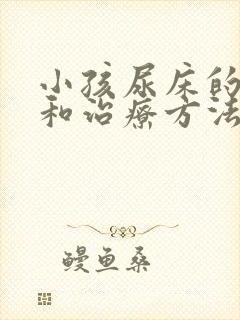 小孩尿床的
和治疗方法
鳗鱼桑